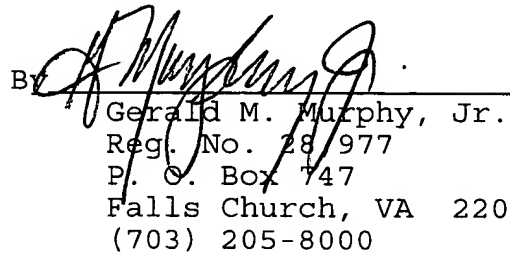 By
Gerald M. Murphy, Jr.
Reg. No. 28,977
P. O. Box 747
Falls Church, VA 220
(703) 205-8000